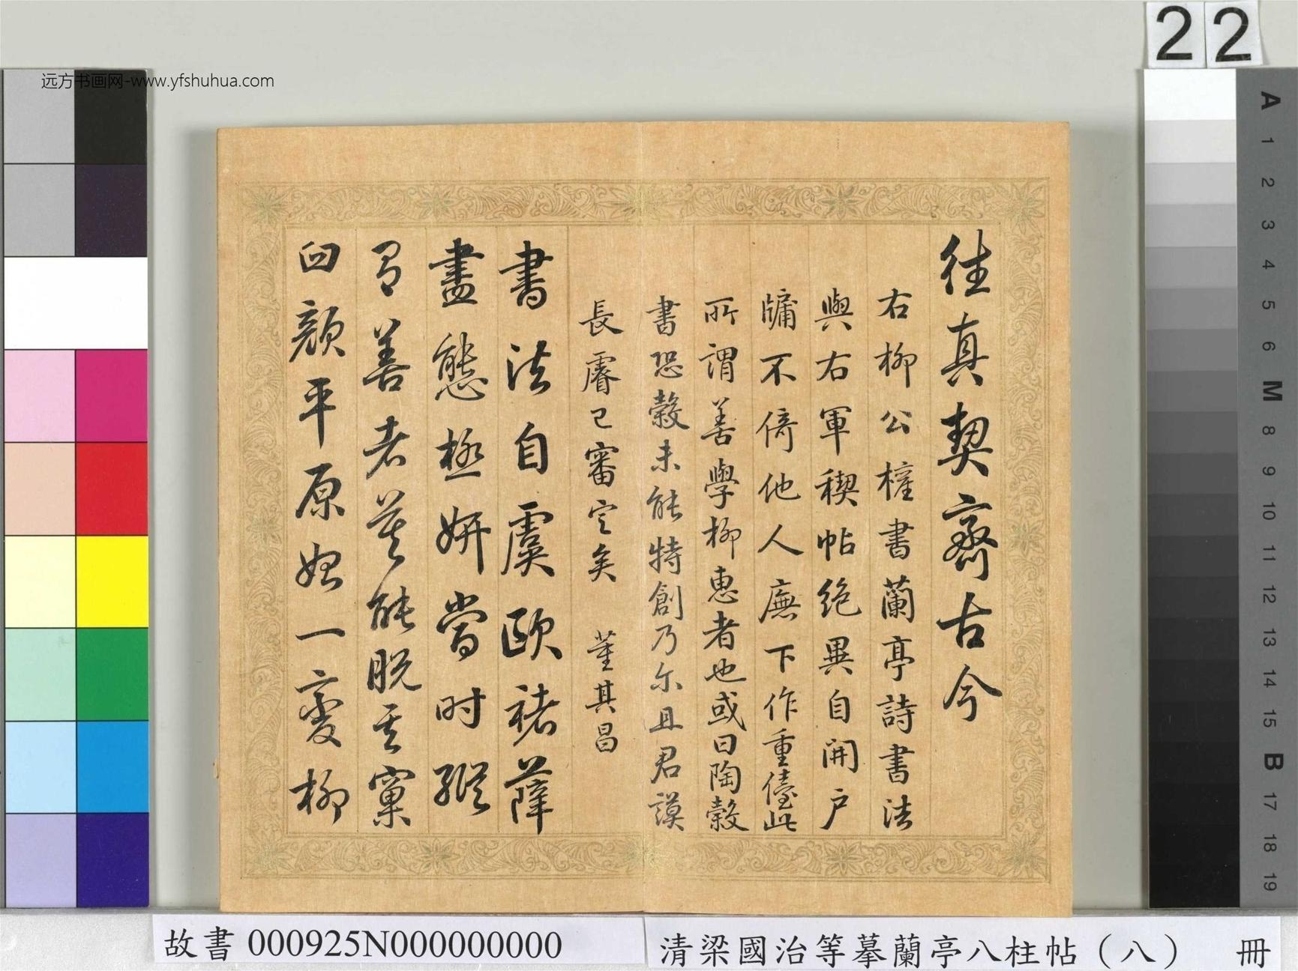 远方书画网-www.yfshuhua.com
22
往真契齋古今
右柳公權書蘭亭詩書法
與右軍稧帖絶異自開戶
牖不倚他人廡下作重儓此
所謂善學柳惠者也或曰陶榖
書恐榖未能特創乃尔且君謨
長睿已審定矣 董其昌
書法自虞歐褚薛
盡態極妍當时縱
有善者莫能脱其窠
臼顔平原始一變柳
A
1
2
3
4
5
6
M
8
9
10
11
12
13
14
15
B
17
18
19
故書 000925N000000000
清梁國治等摹蘭亭八柱帖（八） 冊